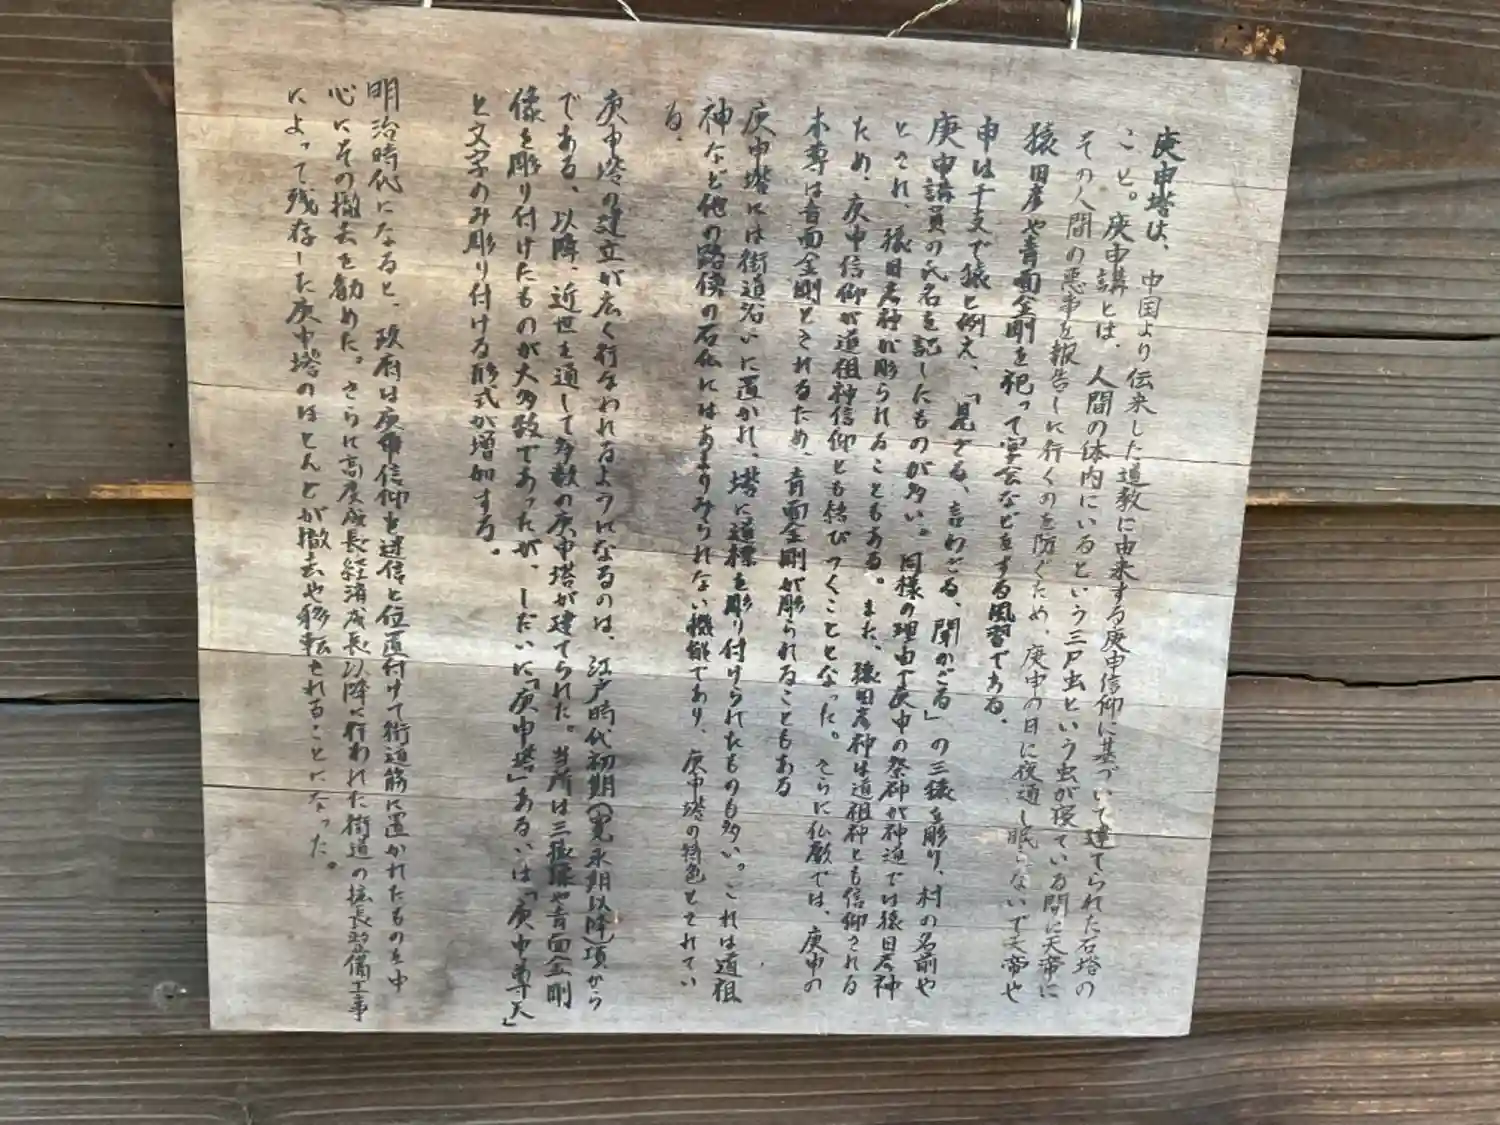 庚申塔は、中国より伝来した道教に由来する庚申信仰に基づいて建てられた石塔の
こと。庚申講とは、人間の体内にいるという三尸虫という虫が寝ている間に天帝に
その人間の悪事を報告しに行くのを防ぐため、庚申の日に夜通し眠らないで天帝や
猿田彦や青面金剛を祀って宴会などをする風習である。
申は干支で猿と例え、「見ざる、言わざる、聞かざる」の三猿を彫り、村の名前や
庚申講員の氏名を記したものが多い。同様の理由で庚申の祭神が神道では猿田彦神
とされ、猿田彦神が彫られることもある。また、猿田彦神は道祖神とも信仰される
ため、庚申信仰が道祖神信仰とも結びつくこととなった。さらに仏教では、庚申の
本尊は青面金剛とされるため、青面金剛が彫られることもある
庚申塔には街道沿いに置かれ、塔に道標を彫り付けられたものも多い。これは道祖
神など他の路傍の石仏にはあまりみられない機能であり、庚申塔の特色とされてい
る。
庚申塔の建立が広く行なわれるようになるのは、江戸時代初期(寛永期以降)頃から
である、以降、近世を通して多数の庚申塔が建てられた。当所は三猿像や青面金剛
像を彫り付けたものが大多数であったが、しだいに「庚申塔」あるいは「庚申尊天」
と文字のみ彫り付ける形式が増加する。
明治時代になると、政府は庚申信仰を迷信と位置付けて街道筋に置かれたものを中
心にその撤去を勧めた。さらに高度成長経済成長以降に行われた街道の拡張整備工事
によって残存した庚申塔のほとんどが撤去や移転されることになった。